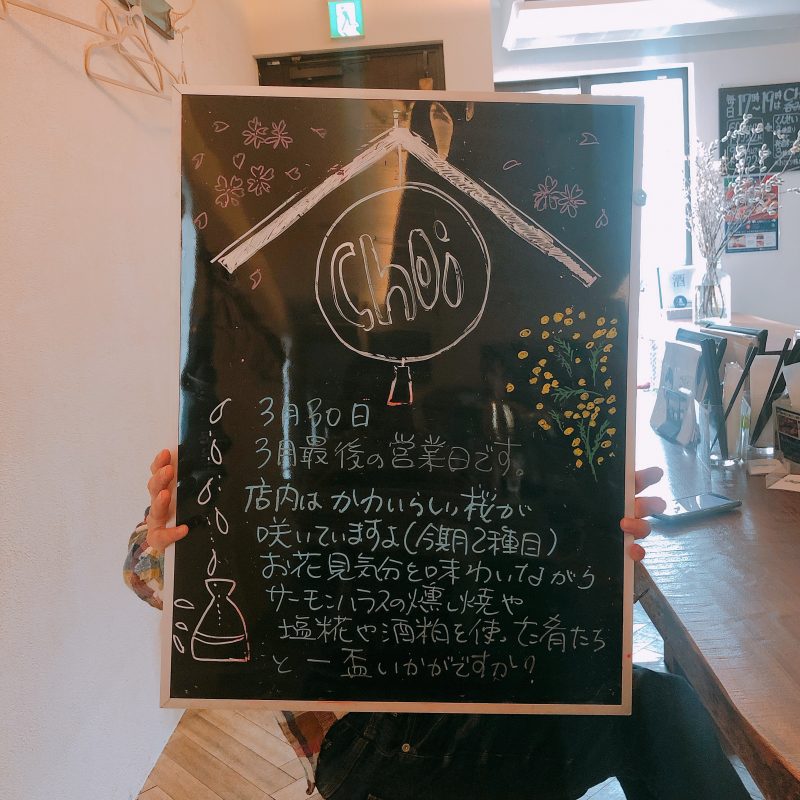 Choi
3月30日
3月最後の営業日です。
店内はかわいらしい桜が
咲いていますよ(今期2種目)
お花見気分を味わいながら
サーモンハラスの燻し焼や
塩糀や酒粕を使った肴たち
と一盃いかがですかい?
毎日17時~19時は
酒